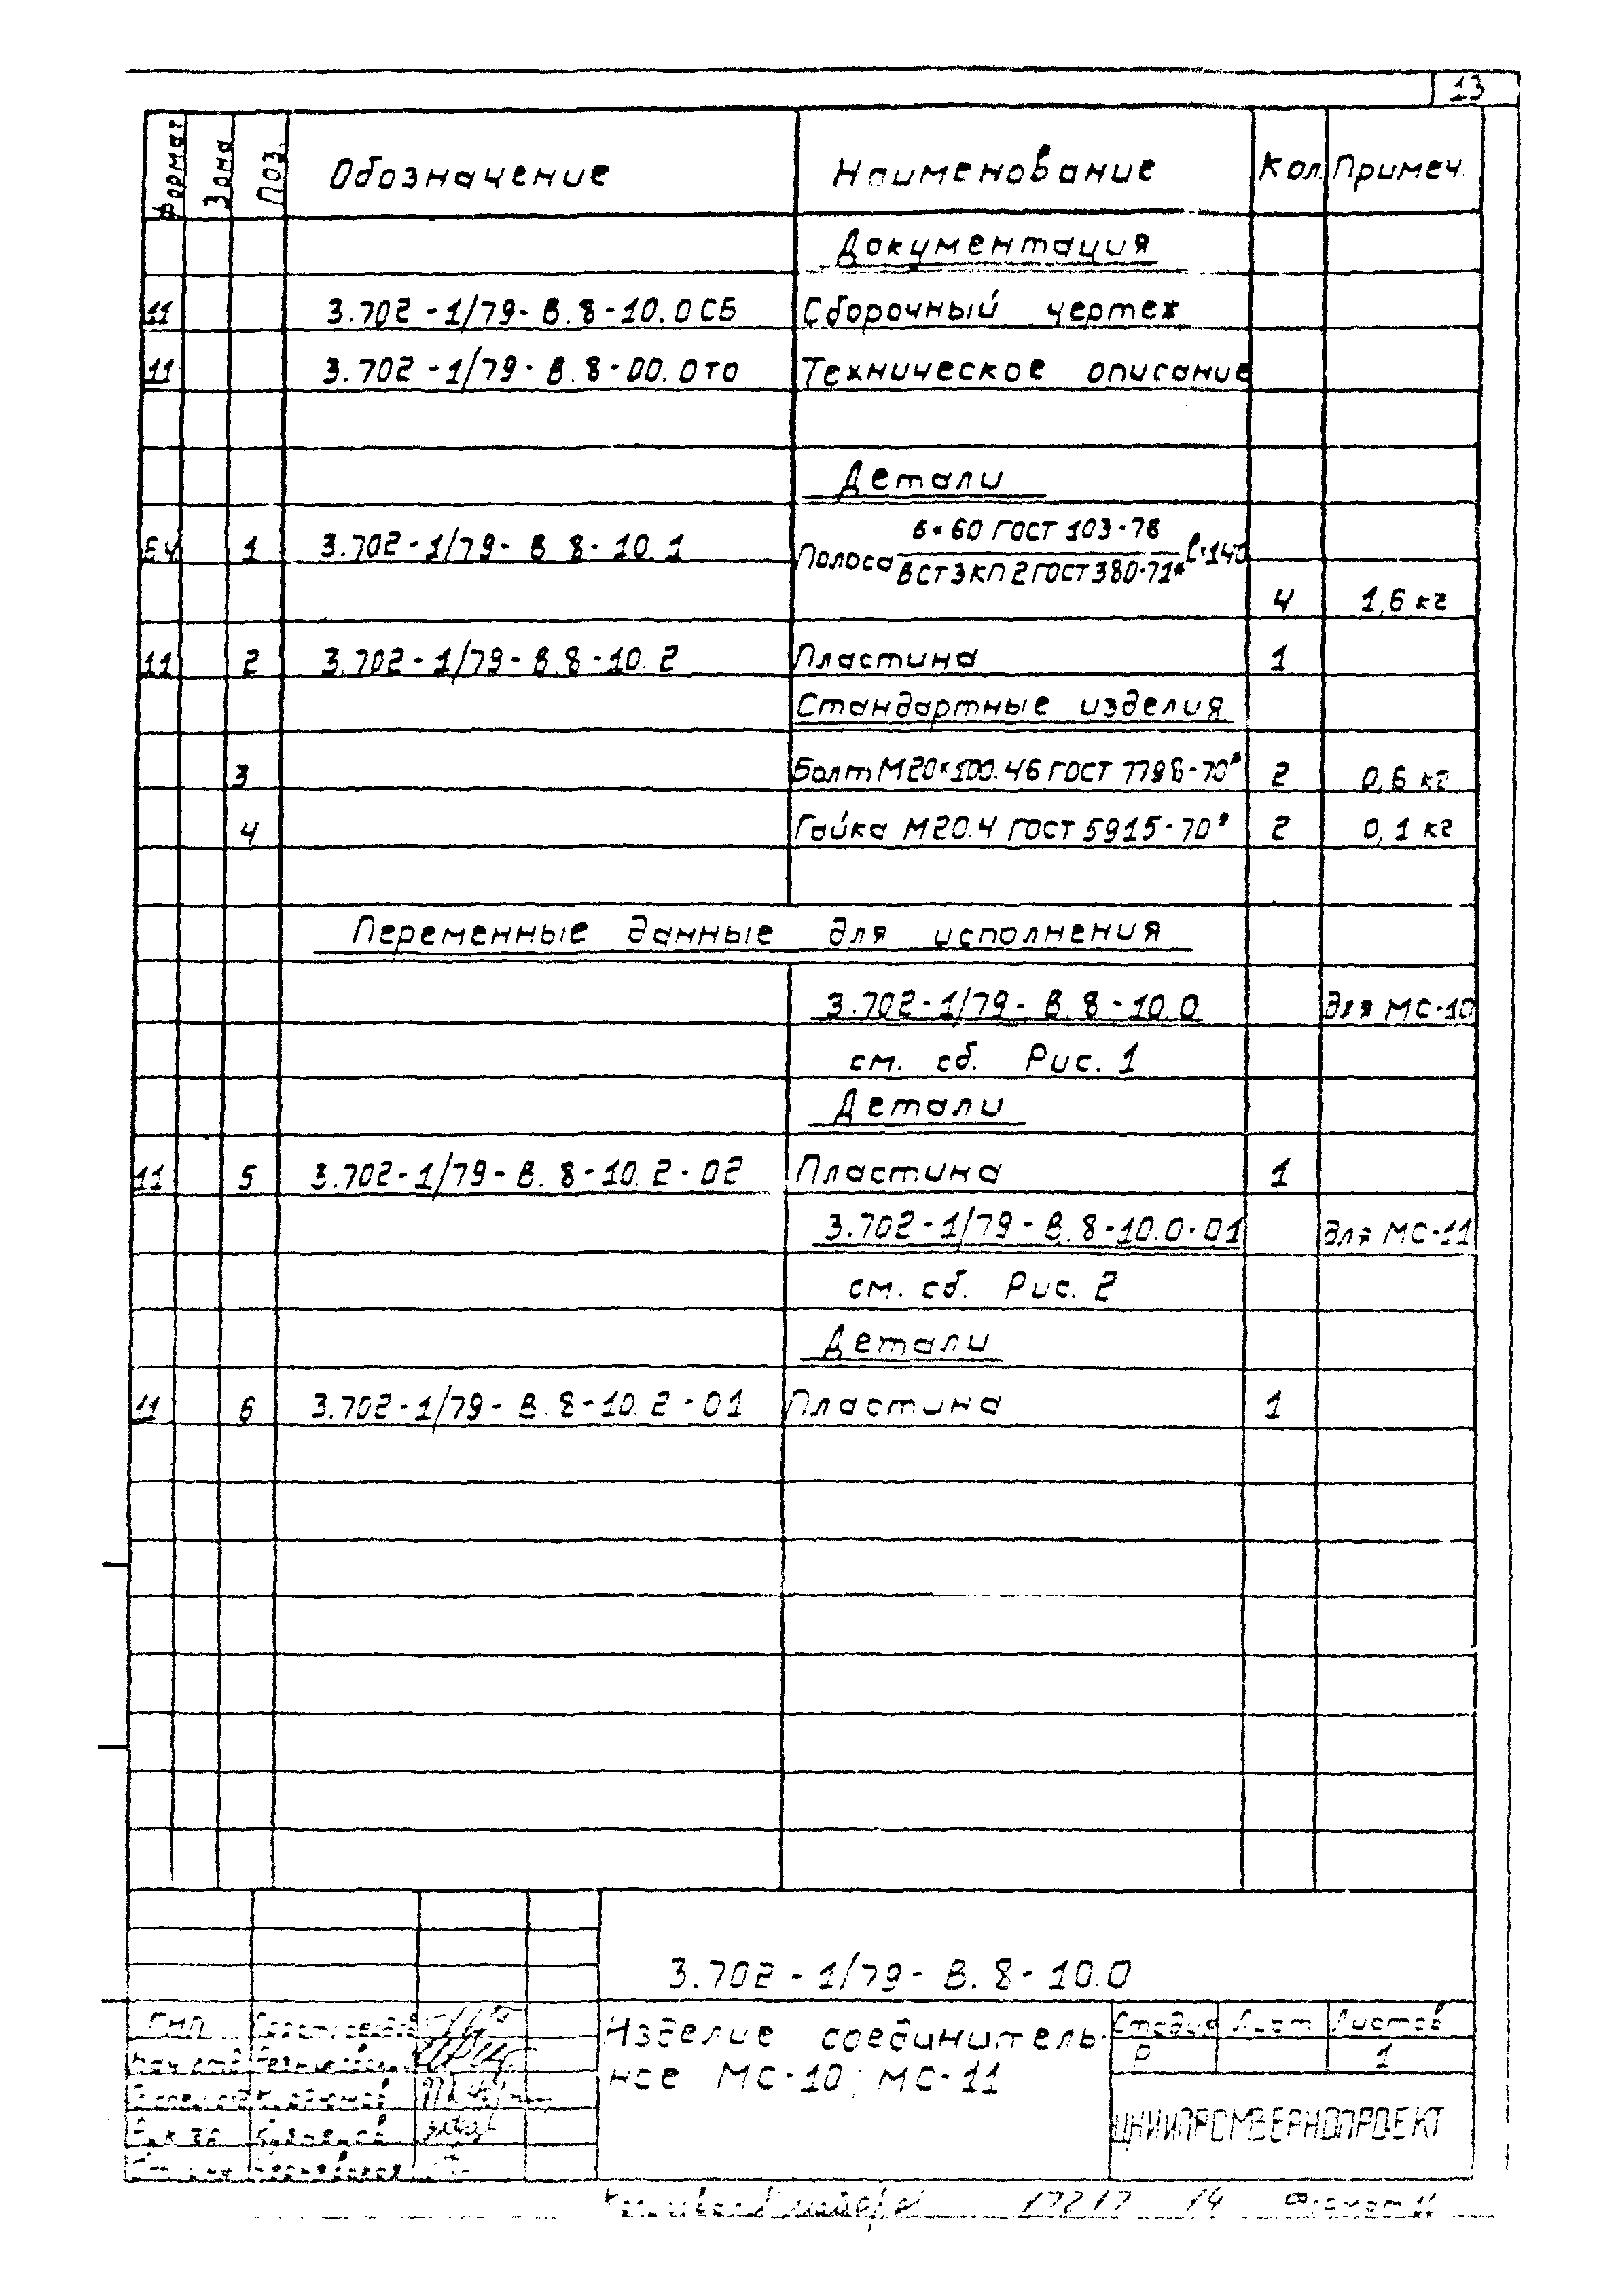 13
Формат Зона Поз. Обозначение Наименование Кол. Примеч.
Документация
11 3.702-1/79-В.8-10.0СБ Сборочный чертеж
11 3.702-1/79-В.8-00.0ТО Техническое описание
Детали
БЧ 1 3.702-1/79-В 8-10.1 Полоса 6×60 ГОСТ 103-76 / ВСТ3КП2 ГОСТ 380-71* ℓ=140
4 1,6 кг
11 2 3.702-1/79-В.8-10.2 Пластина 1
Стандартные изделия
3 Болт М20×100.46 ГОСТ 7798-70* 2 0,6 кг
4 Гайка М20.4 ГОСТ 5915-70* 2 0,1 кг
Переменные данные для исполнения
3.702-1/79-В.8-10.0 для МС-10
см. сб. Рис. 1
Детали
11 5 3.702-1/79-В.8-10.2-02 Пластина 1
3.702-1/79-В.8-10.0-01 для МС-11
см. сб. Рис. 2
Детали
11 6 3.702-1/79-В.8-10.2-01 Пластина 1
3.702-1/79-В.8-10.0
Изделие соединитель-
ное МС-10; МС-11
Стадия Лист Листов
Р 1
ЦНИИПРОМЗЕРНОПРОЕКТ
ГИП
Нач. отд.
Кузнецов
17217 14 Формат 11